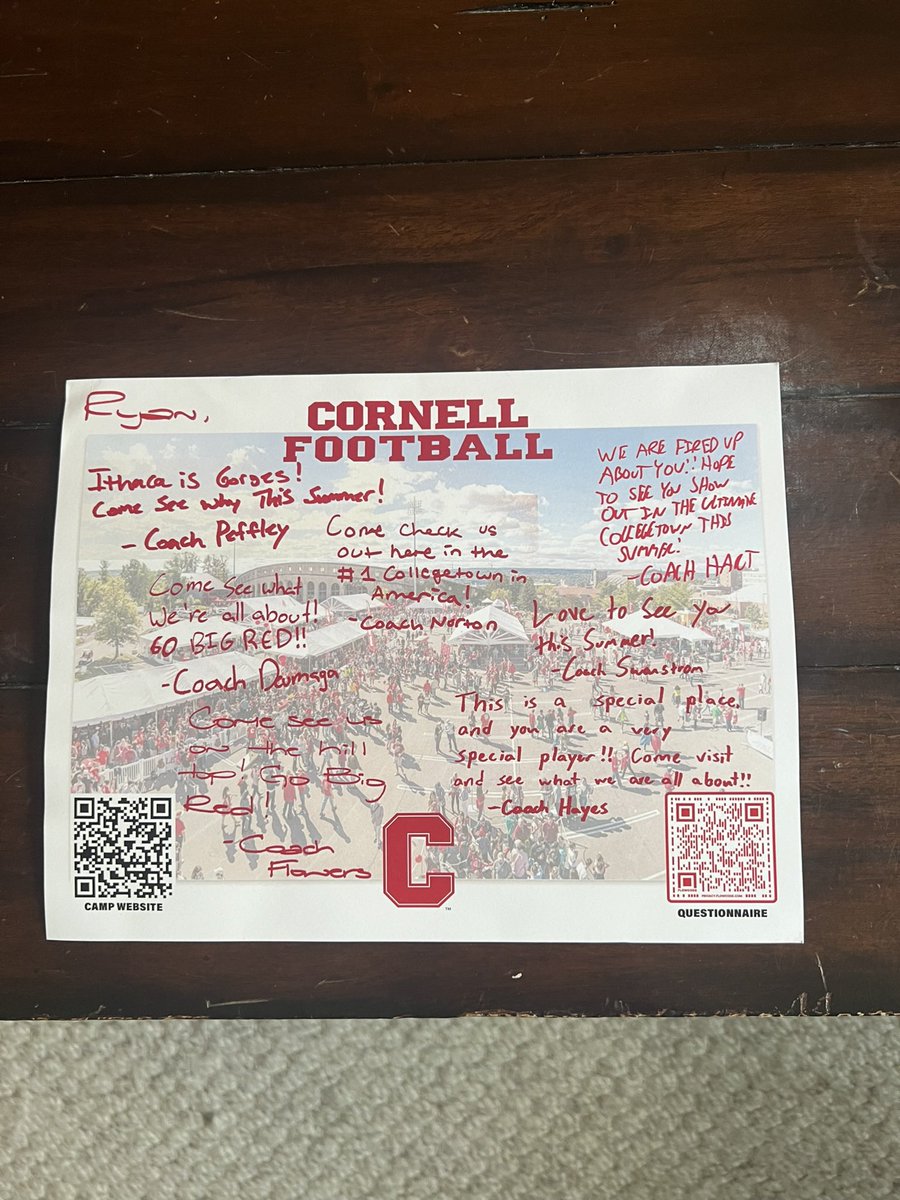 Ryan,
CORNELL
FOOTBALL
Ithaca is Gorges!
Come See why This Summer!
- Coach Peffley
Come check us
out here in the
#1 Collegetown in
America!
- Coach Norton
WE ARE FIRED UP
ABOUT YOU!! HOPE
TO SEE YOU SHOW
OUT IN THE ULTIMATE
COLLEGETOWN THIS
SUMMER!
- COACH HART
Come See what
We're all about!
GO BIG RED!!
- Coach Daumaga
Love to See you
this Summer!
- Coach Swanstrom
Come see us
on the hill
top! Go Big
Red!
- Coach
Flowers
This is a special place,
and you are a very
special player!! Come visit
and see what we are all about!!
- Coach Hayes
C
TM
CAMP WEBSITE
QUESTIONNAIRE